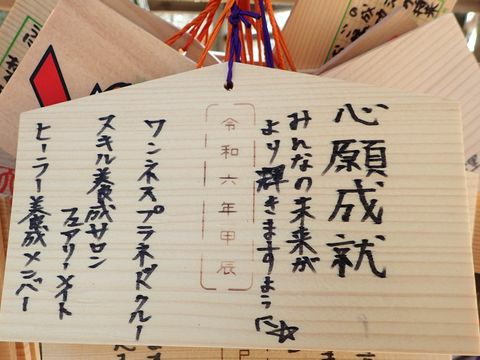 心願成就
みんなの未来が
より輝きますように☆
令和六年甲辰
ワンネスプラネッドクルー
スキル養成サロン
フェアリーメイト
ヒーラー養成メンバー